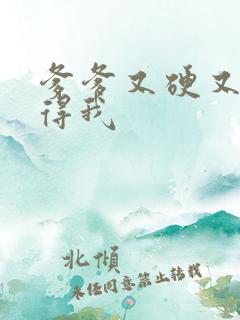 爹爹又硬又
得我
北倾
未经同意禁止转载